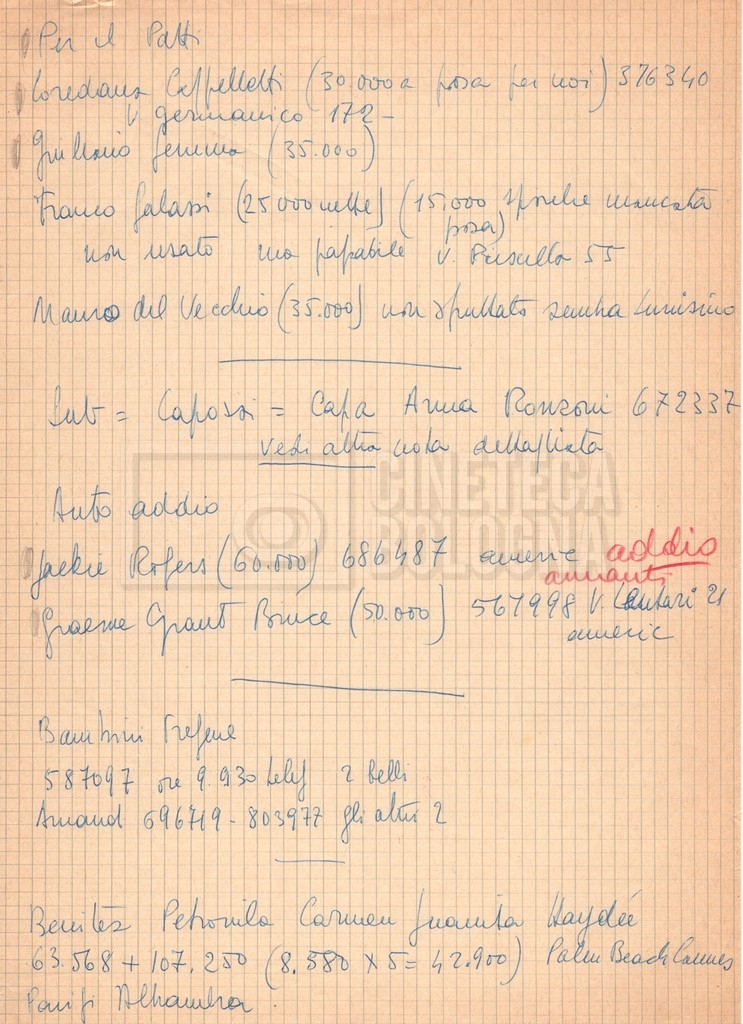 Per il Patti
Loredana Cappelletti (30.000 a posa per noi) 376340
V. Germanico 172 -
Giuliano Gemma (35.000)
Franco Galassi (25000 nette) (15.000 sporche mancata
posa)
non usato ma papabile V. Priscilla 55
Mauro del Vecchio (35.000) non sfruttato sembra
Sub = = Capa Anna Ronzoni 672337
vedi altra nota dettagliata
CINETECA
BOLOGNA
Auto addio
Jackie Rogers (60.000) 686487 americ addio
amanti
Graeme Grant Bruce (50.000) 567998 V. 21
americ
Bambini Fregene
587097 ore 9.930 telef 2 belli
Armand 696719 - 803977 gli altri 2
Benitez Petronila Carmen Juanita Haydée
63.568 + 107.250 (8.580 x 5 = 42.900) Palm Beach Cannes
Parigi Alhambra